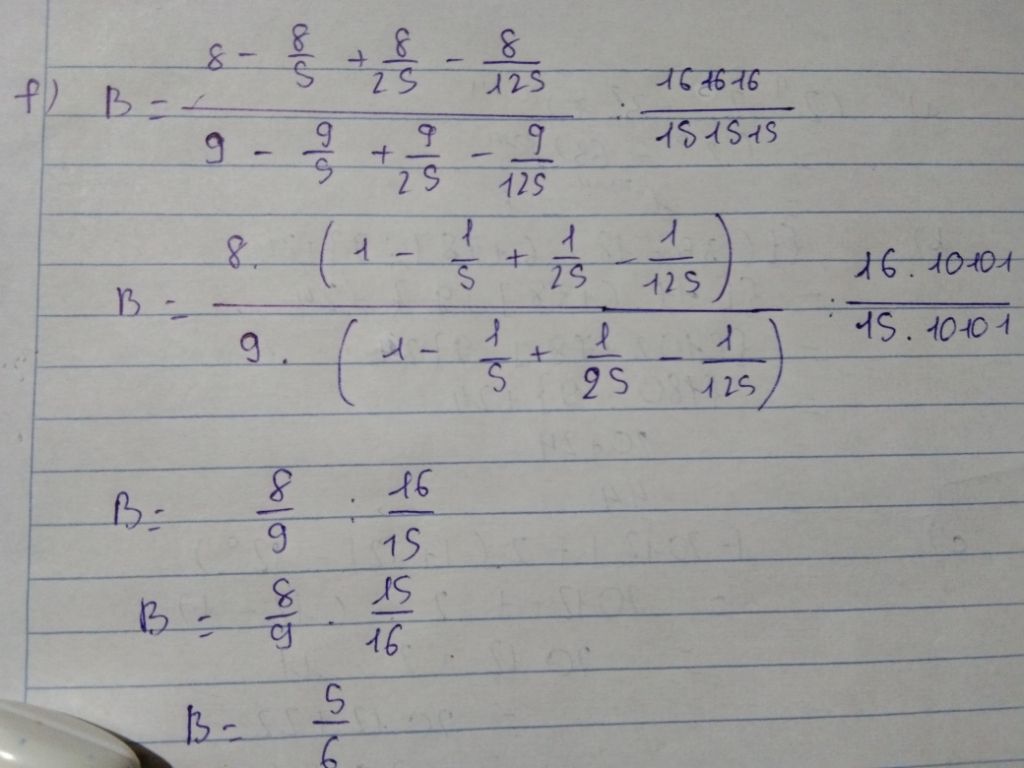 f) B = (8 - 8/5 + 8/25 - 8/125) / (9 - 9/5 + 9/25 - 9/125) : 161616/151515
B = 8. (1 - 1/5 + 1/25 - 1/125) / 9. (1 - 1/5 + 1/25 - 1/125) : 16.10101/15.10101
B = 8/9 : 16/15
B = 8/9 . 15/16
B = 5/6